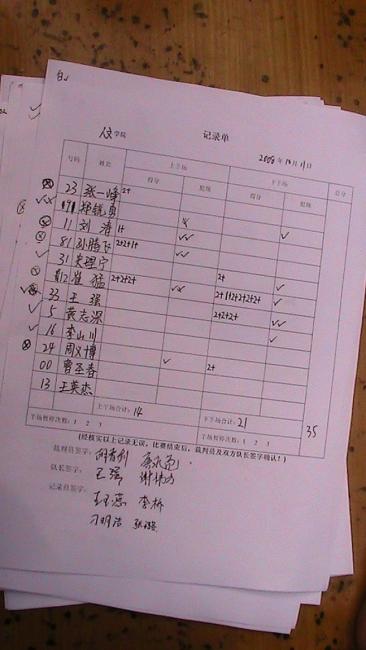 人文学院 记录单 2008年10月11日
号码 姓名 上半场 下半场 总分
得分 犯规 得分 犯规
23 张一峰 2+
91
11 刘涛 1+
81 孙腾飞 2+2+1+
31 史理宁
12 崔猛 2+2+2+ 2+
33 王强 2+1+2+2+2+2+
5 袁志深 2+2+2+
16 李山川
24 周义博
00 曹圣春 2+
13 王英杰
上半场合计：14 下半场合计：21 35
半场暂停次数： 1 2 3 半场暂停次数： 1 2 3
(经核实以上记录无误，比赛结束后，裁判员及双方队长签字确认！)
裁判员签字：
队长签字： 王强
记录员签字： 李桥